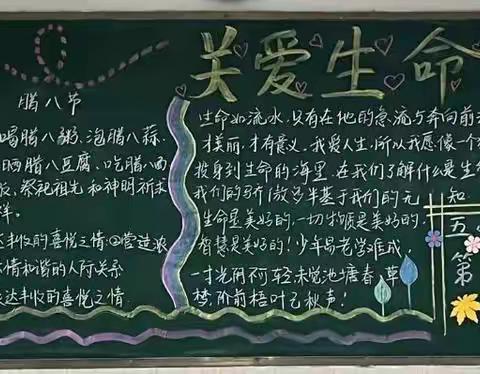 腊八节
喝腊八粥、泡腊八蒜、
晒腊八豆腐、吃腊八面
祭祀祖先和神明祈求
祥。
达丰收的喜悦之情;②营造浓
情和谐的人际关系
达丰收的喜悦之情
关爱生命
生命如流水,只有在他的急流与奔向前
才美丽,才有意义。我爱人生,所以我愿像一个
投身到生命的海里,在我们了解什么是生
我们的骄傲多半基于我们的无知
生命是美好的,一切物质是美好的,
智慧是美好的!少年易老学难成,
一寸光阴不可轻,未觉池塘春草
梦,阶前梧叶已秋声!
五
第